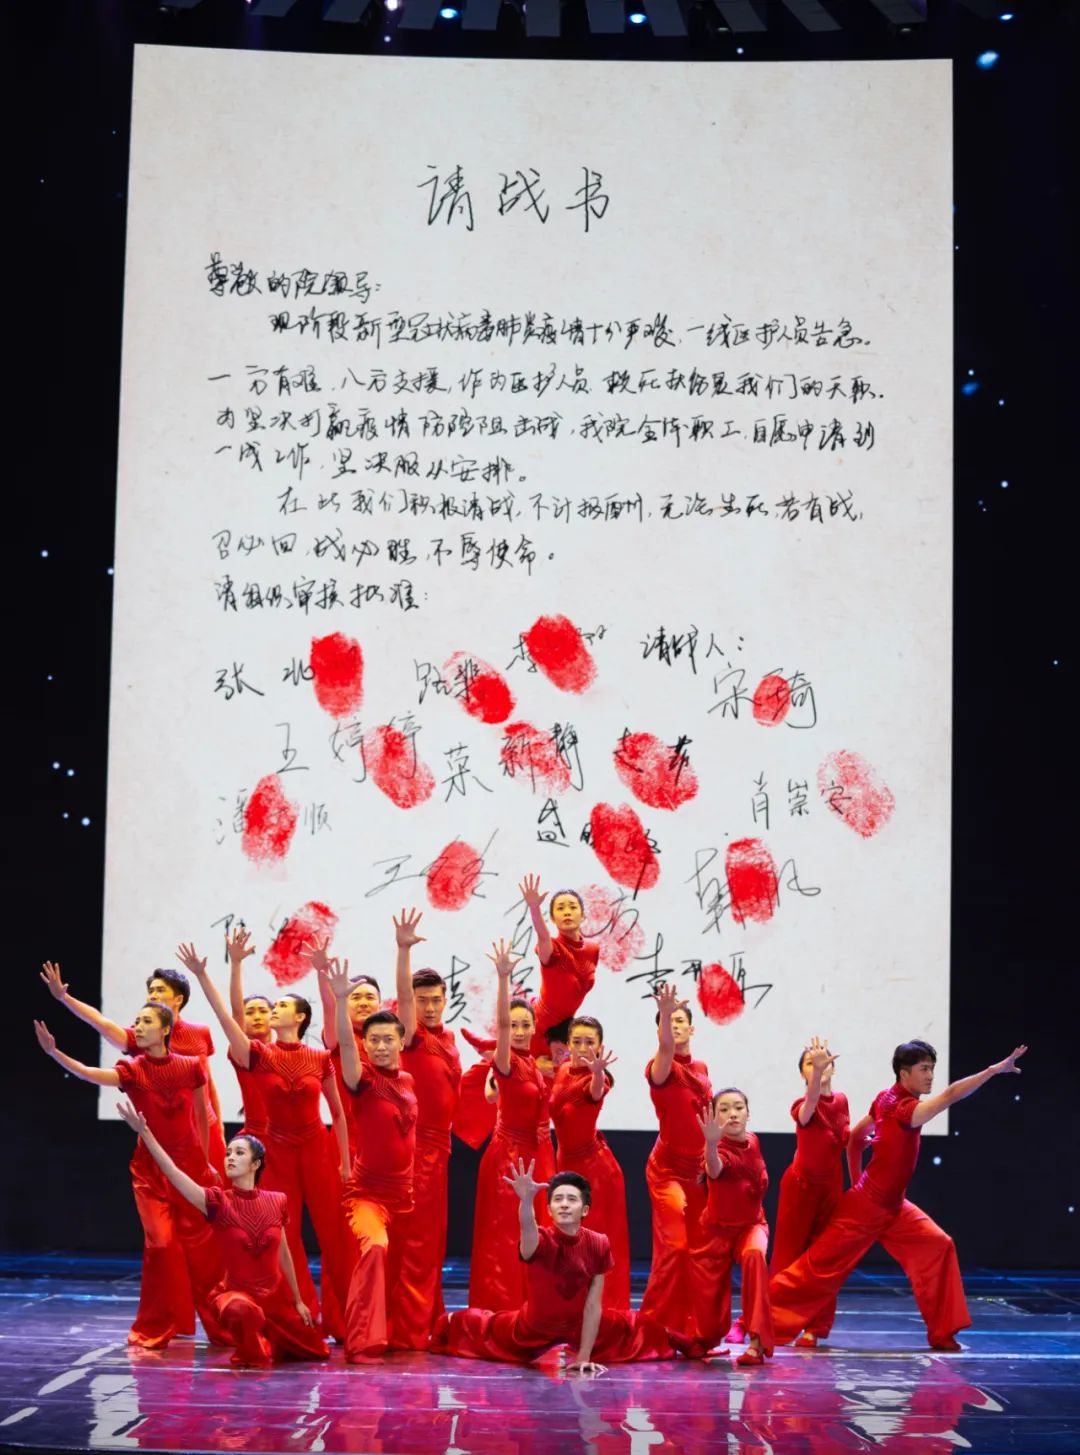 请战书
尊敬的院领导：
现阶段新型冠状病毒肺炎疫情十分严峻，一线医护人员告急。
一方有难，八方支援，作为医护人员，救死扶伤是我们的天职.
为坚决打赢疫情防控阻击战，我院全体职工，自愿申请到
一线工作，坚决服从安排。
在此我们积极请战，不计报酬，无论生死，若有战，
召必回，战必胜，不辱使命。
请组织审核批准：
请战人：
张 路 李 宋琦
王婷婷 菜新静 赵
潘 顺 盛 肖崇安
王 韩
方
李 源